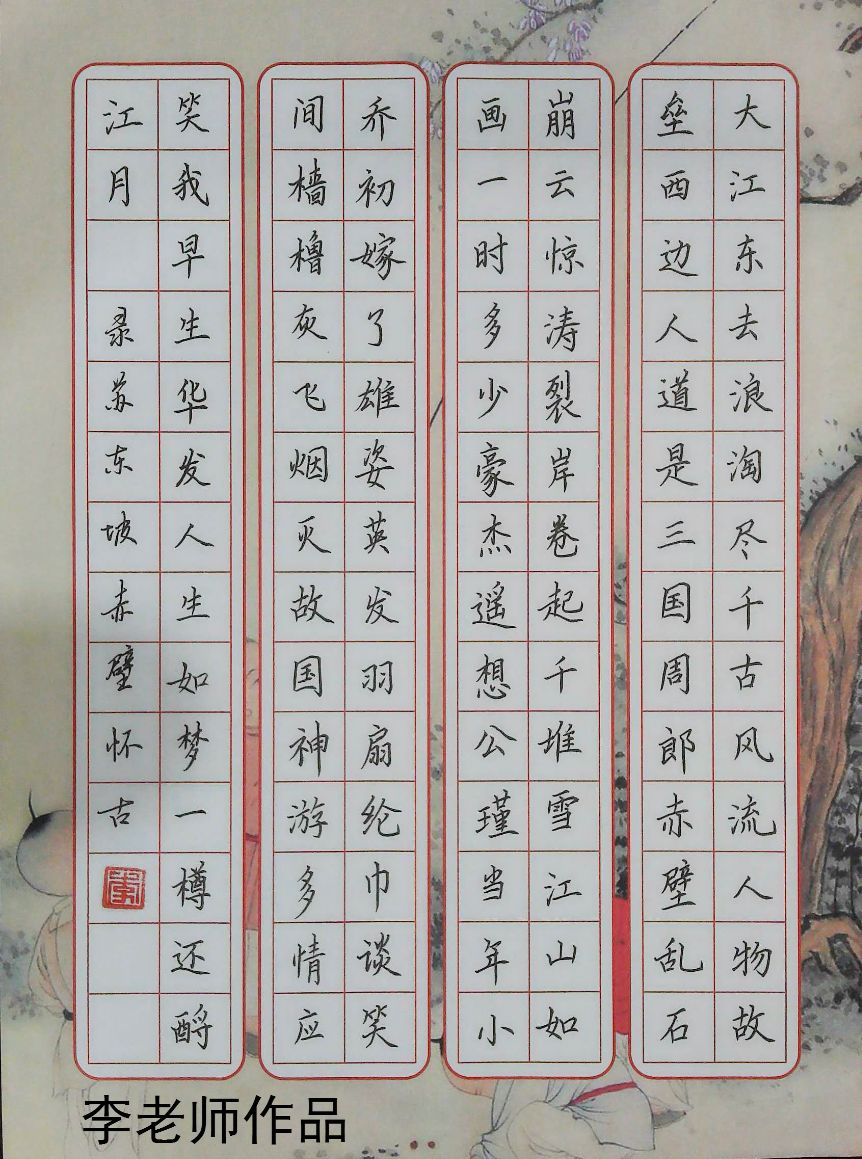 大江东去浪淘尽千古风流人物故
垒西边人道是三国周郎赤壁乱石
崩云惊涛裂岸卷起千堆雪江山如
画一时多少豪杰遥想公瑾当年小
乔初嫁了雄姿英发羽扇纶巾谈笑
间樯橹灰飞烟灭故国神游多情应
笑我早生华发人生如梦一樽还酹
江月 录苏东坡赤壁怀古
李老师作品